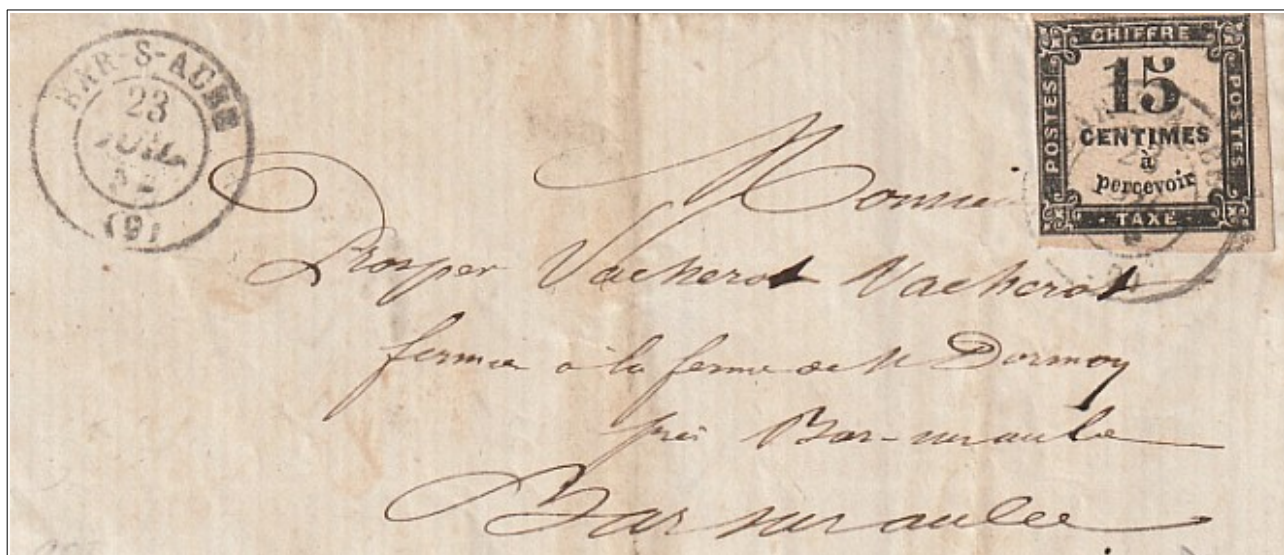 BAR-S-AUBE
23
JUIL.
(9)
CHIFFRE
POSTES
15
CENTIMES
à
percevoir
POSTES
TAXE
Monsieur
Prosper Vacherot Vacherot
fermier à la ferme de M Dormoy
près Bar-sur aube
Bar sur aube